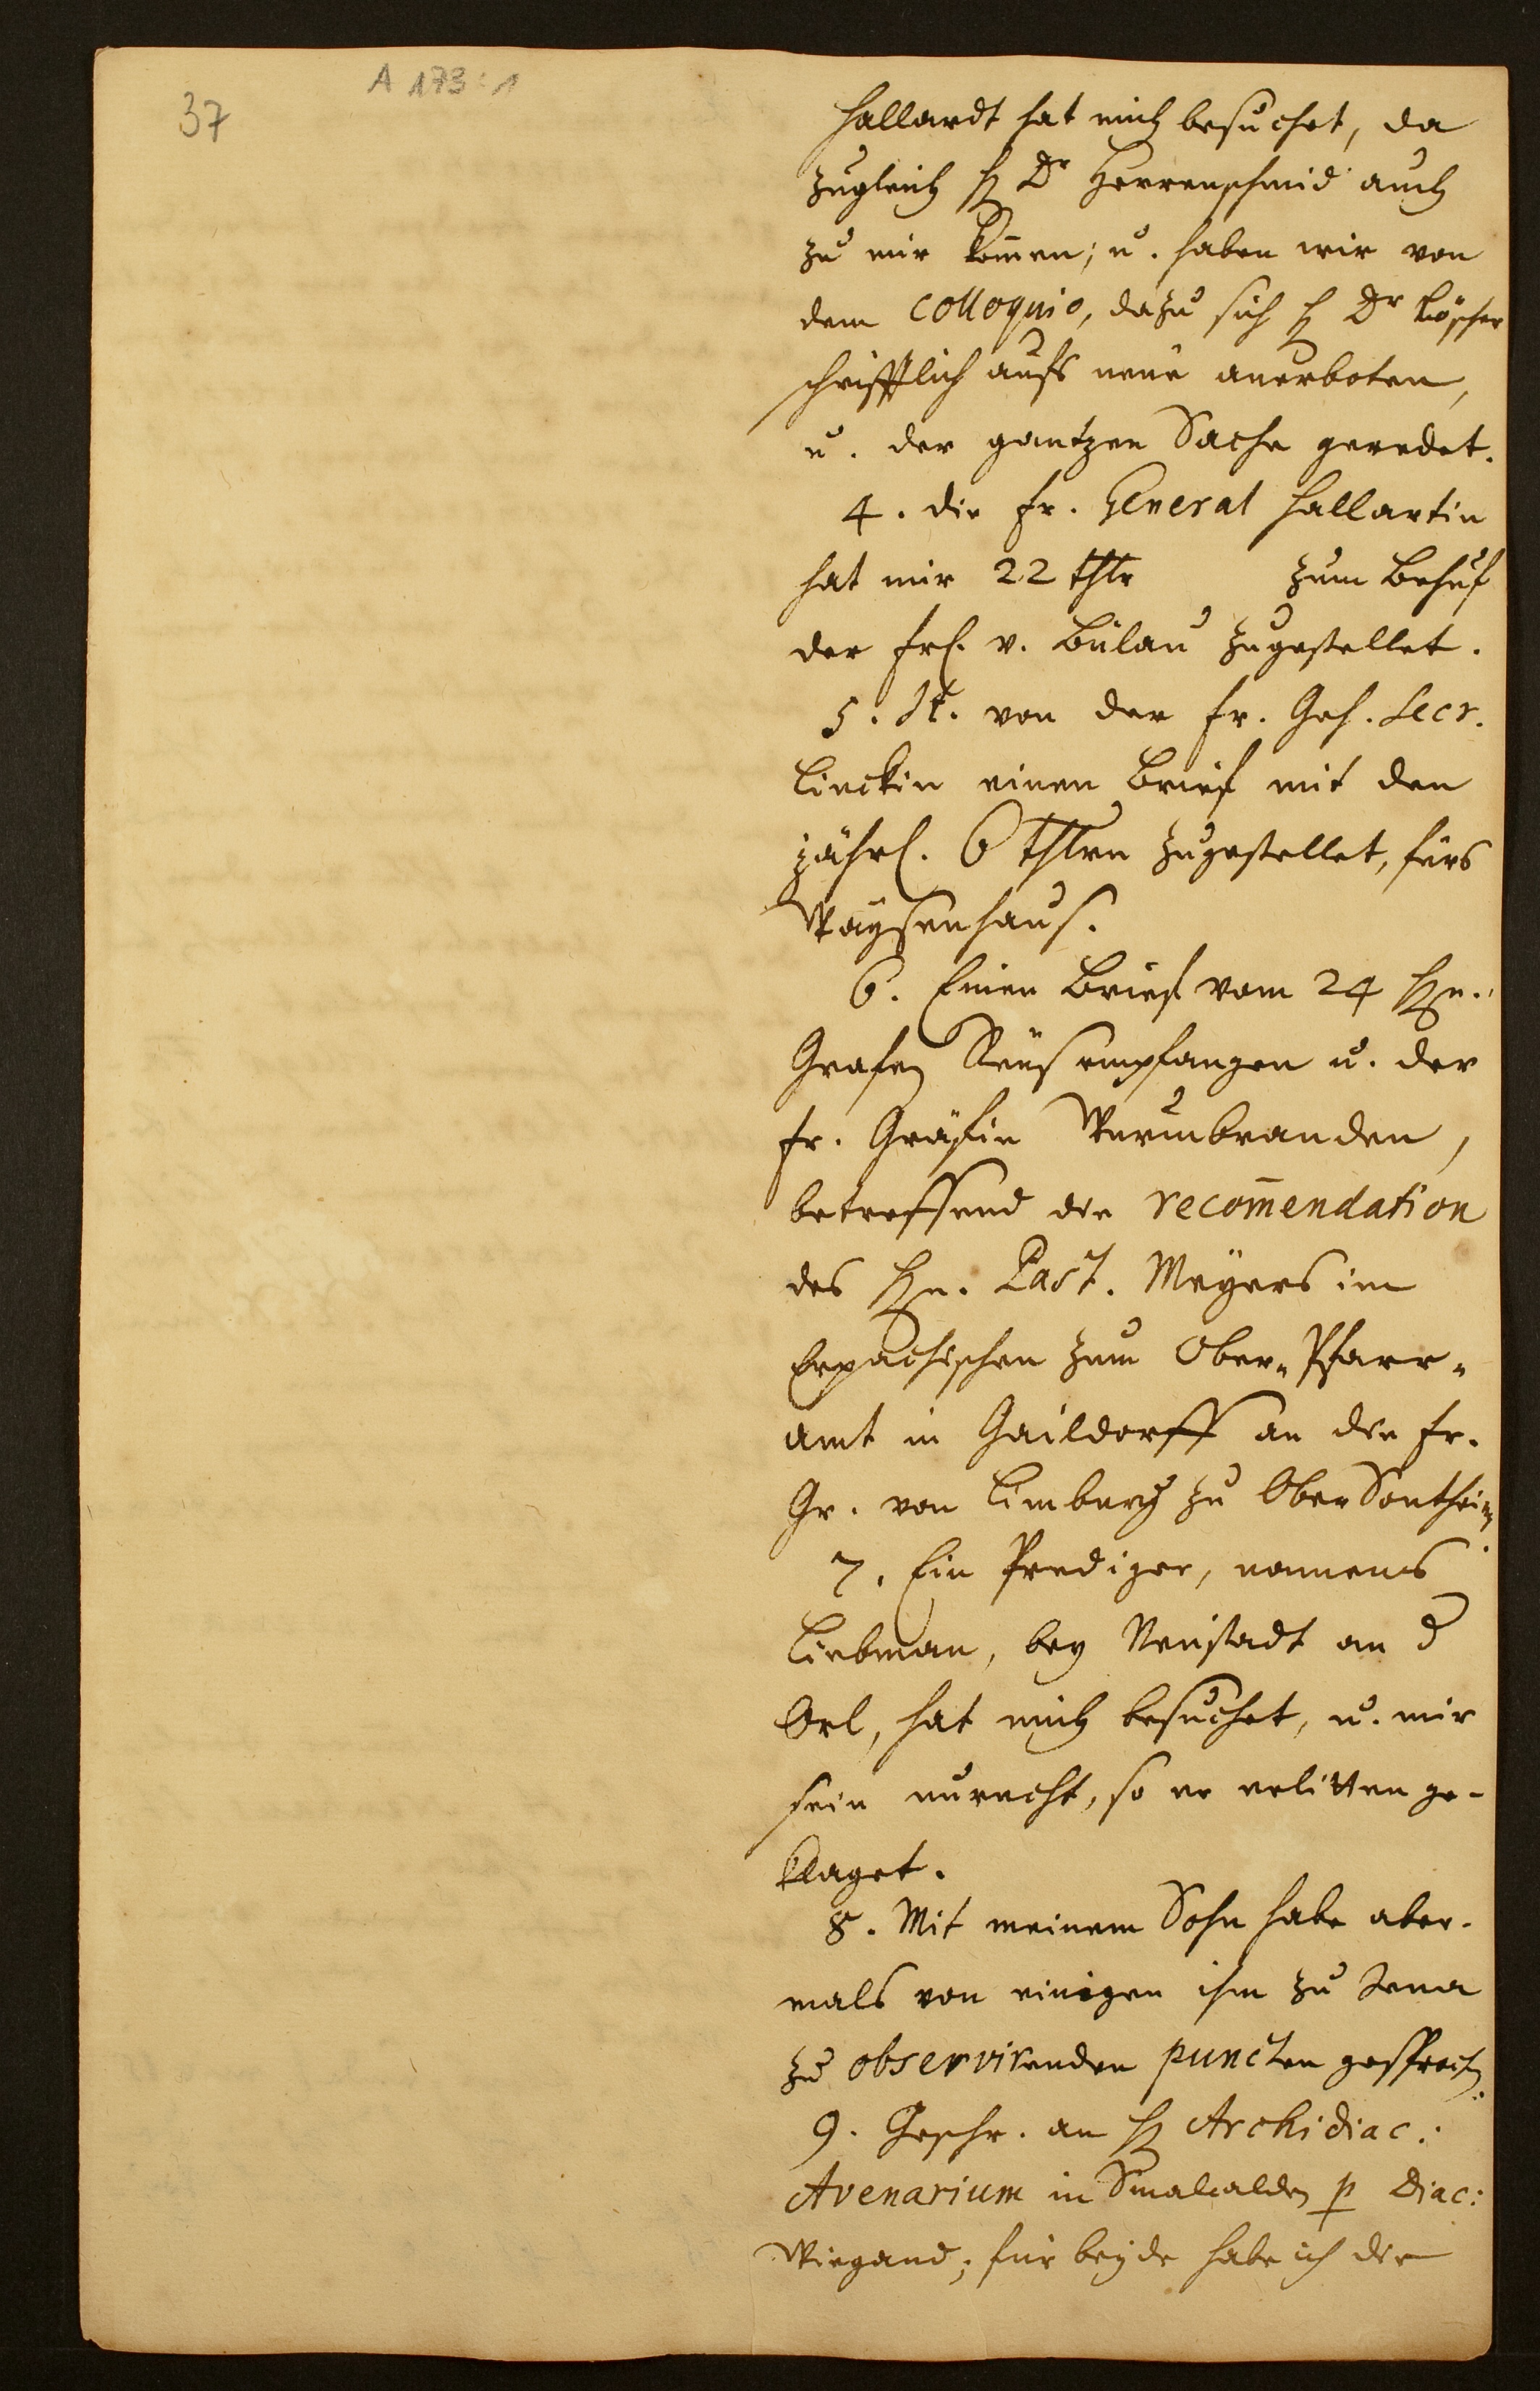 A 173:1
37
Hallardt hat mich besuchet, da
zugleich H. Dr Herrenschmid auch
zu mir kom̄en; u. haben wir von
dem Colloquio, dazu sich H. Dr Löscher
schrifftlich aufs neue anerboten,
u. der gantzen Sache geredet.
4. die Fr. General Hallartin
hat mir 22 thlr zum Behuf
der Frl. v. Bülau zugestellet.
5. It. von der Fr. Geh. Secr.
Linckin einen Brief mit den
jährl. 6 Thlrn zugestellet, fürs
Waysenhaus.
6. Einen Brief vom 24 Hn.
Grafen Reuß empfangen u. der
Fr. Gräfin Wurmbranden,
betreffend die recom̄endation
des Hn. Past. Meyers im
Erpachischen zum Ober-Pfarr-
amt in Gaildorff an die Fr.
Gr. von Limburg zu Ober Sontheim.
7. Ein Prediger, nahmens
Liebman, bey Neustadt an d
Orl, hat mich besuchet, u. mir
sein unrecht, so er erlitten ge-
klaget.
8. Mit meinem Sohn habe aber-
mals von einigen ihm zu Jena
zu observirenden puncten gesprochen.
9. Geschr. an H. Archidiac:
Avenarium in Smalcalden p Diac:
Wiegand; für beyde habe ich die